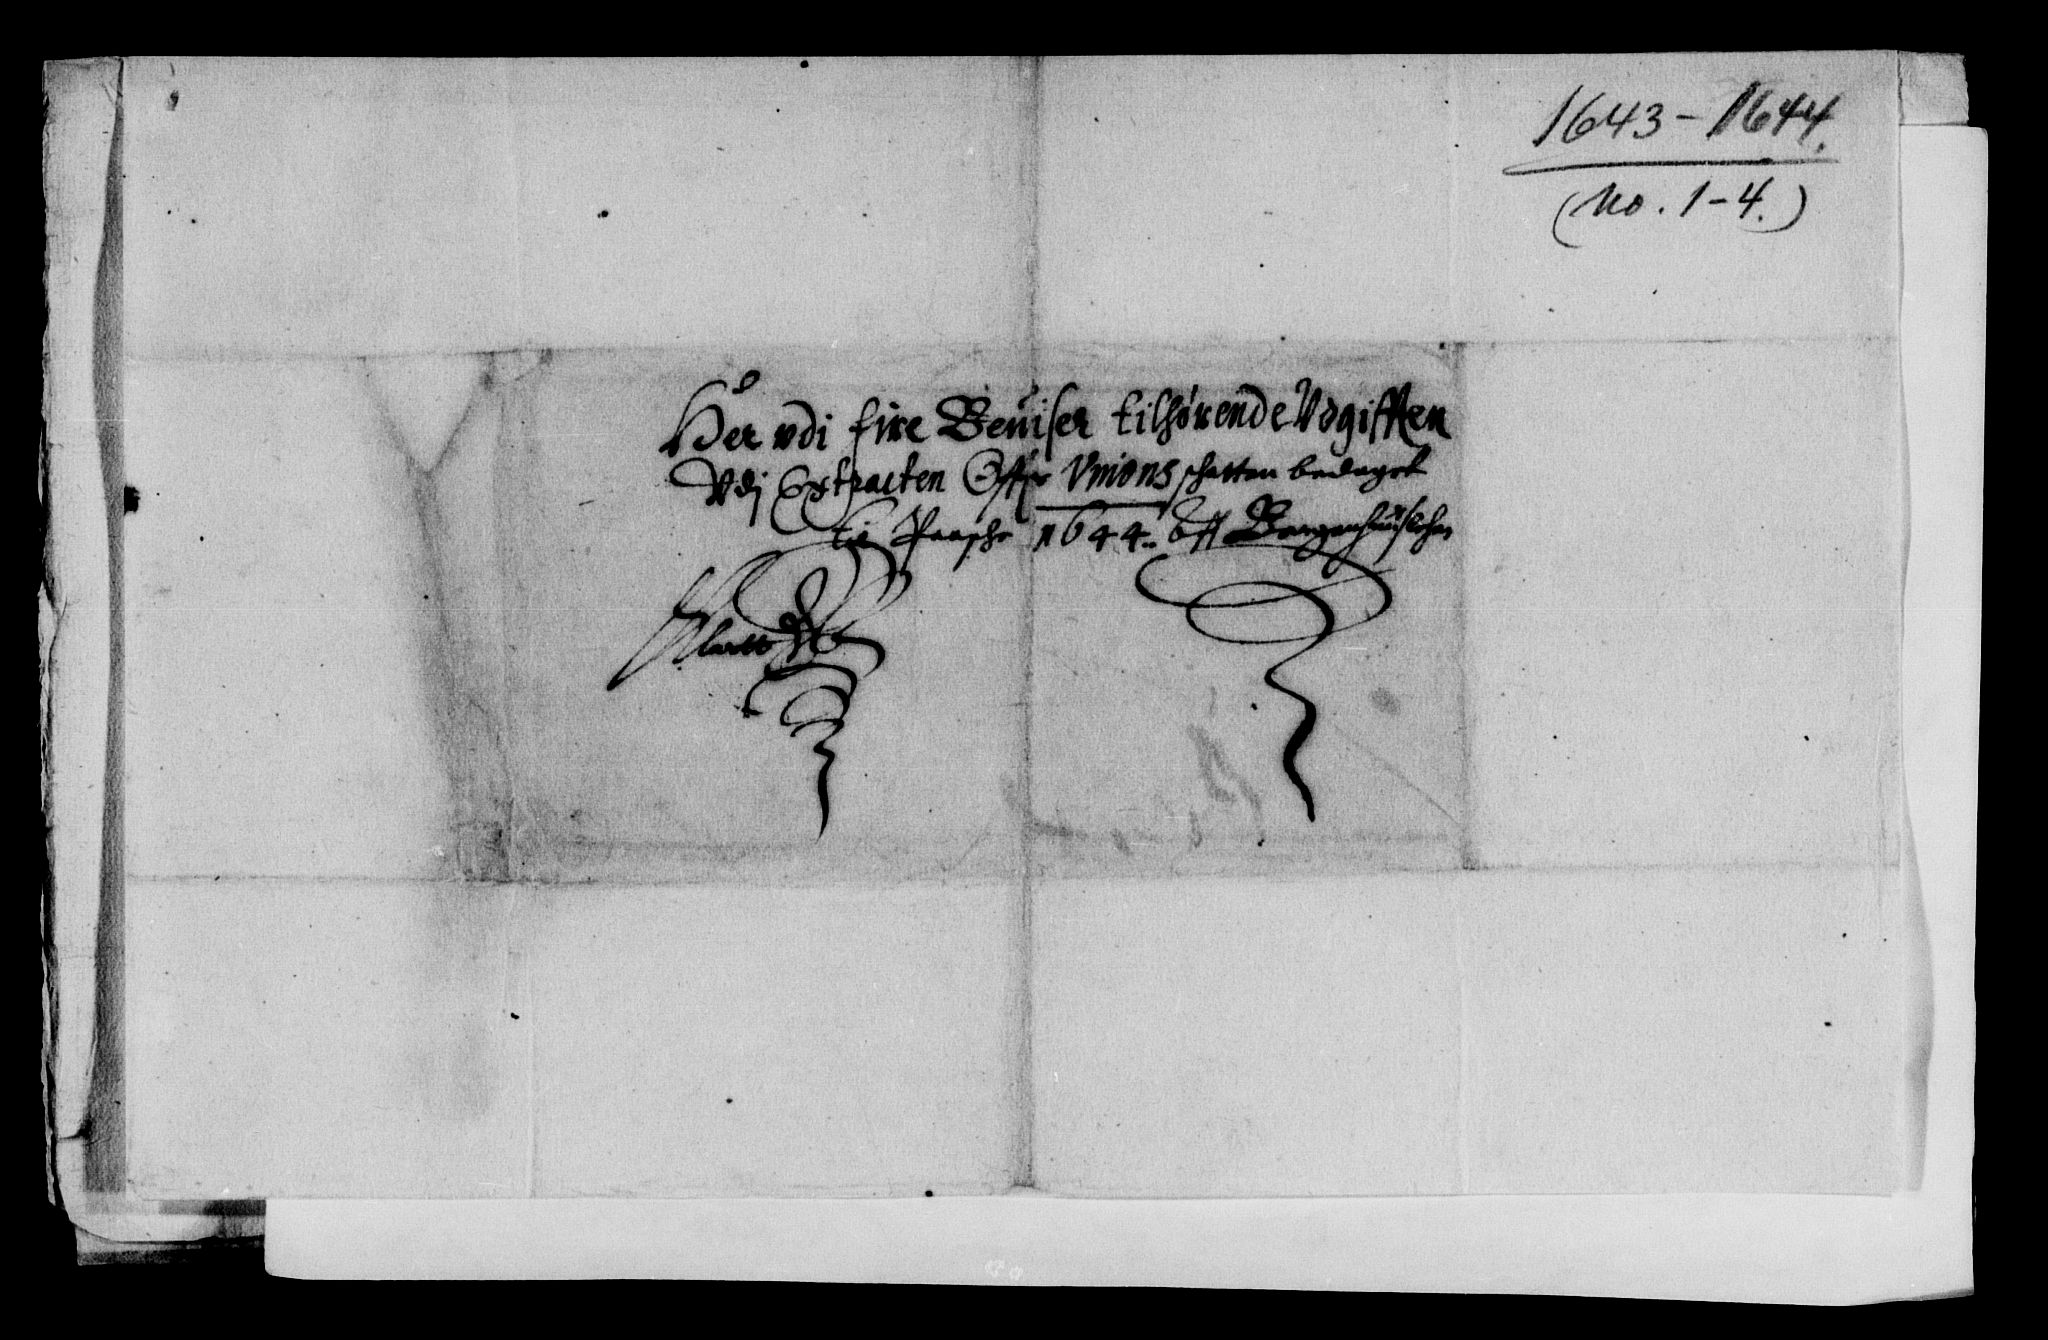 1643-1644.
(No. 1-4.)
Her vdi fire Beuiser tilhørende Vdgifften
Vdj Extracten Offuer Vnions schatten bedaget
til Paasche 1644. Off Bergenhuus lehn